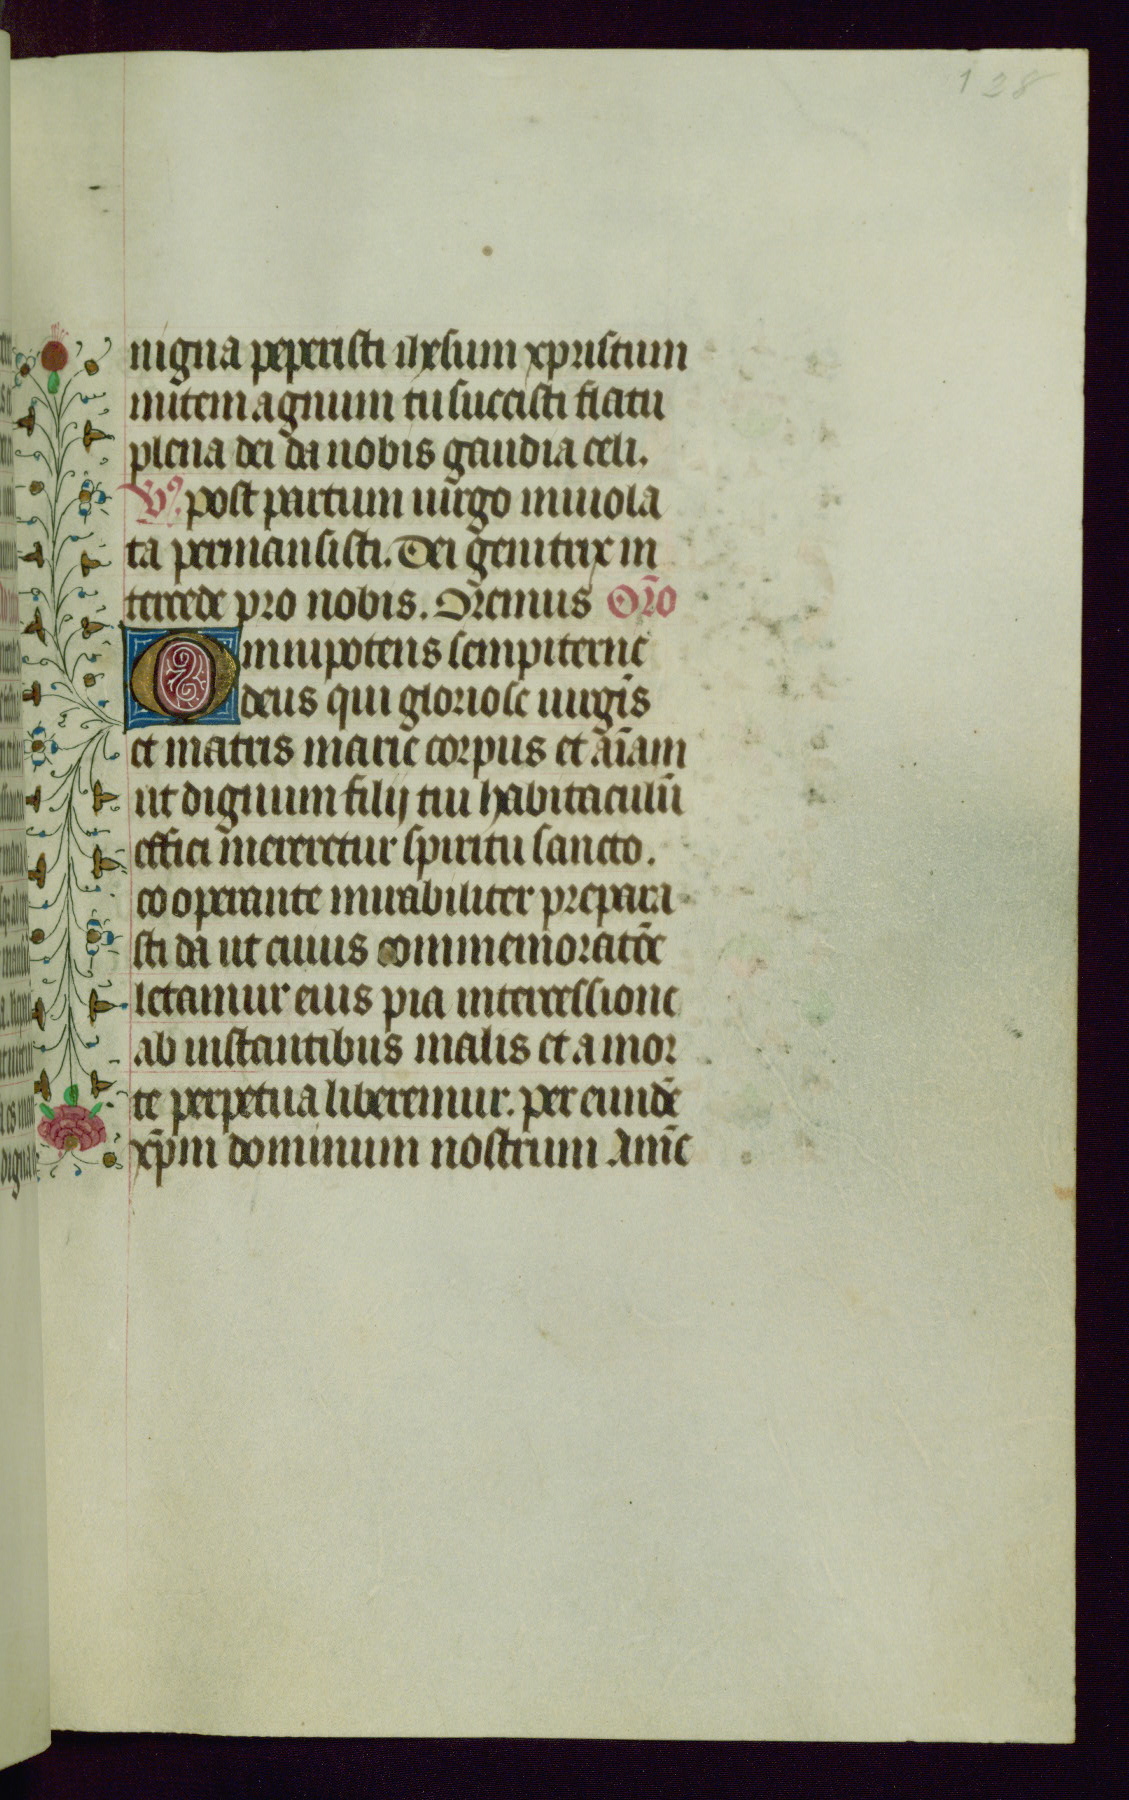 128
nigna peperisti ihesum xpristum
mitem agnum tu succisti fiatu
plena dei da nobis gaudia celi.
V̛. post partum uirgo inuiola
ta permansisti. Dei genitrix in
tercede pro nobis. Oremus Or̄o
Omnipotens sempiterne
deus qui gloriose uirgīs
et matris marie corpus et aīam
ut dignum filij tui habitaculū
effici mereretur spiritu sancto.
co operante mirabiliter prepara
sti da ut cuius commemoratōe
letamur eius pia intercessione
ab instantibus malis et a mor
te perpetua liberemur. per eundē
xp̄m dominum nostrum Amē